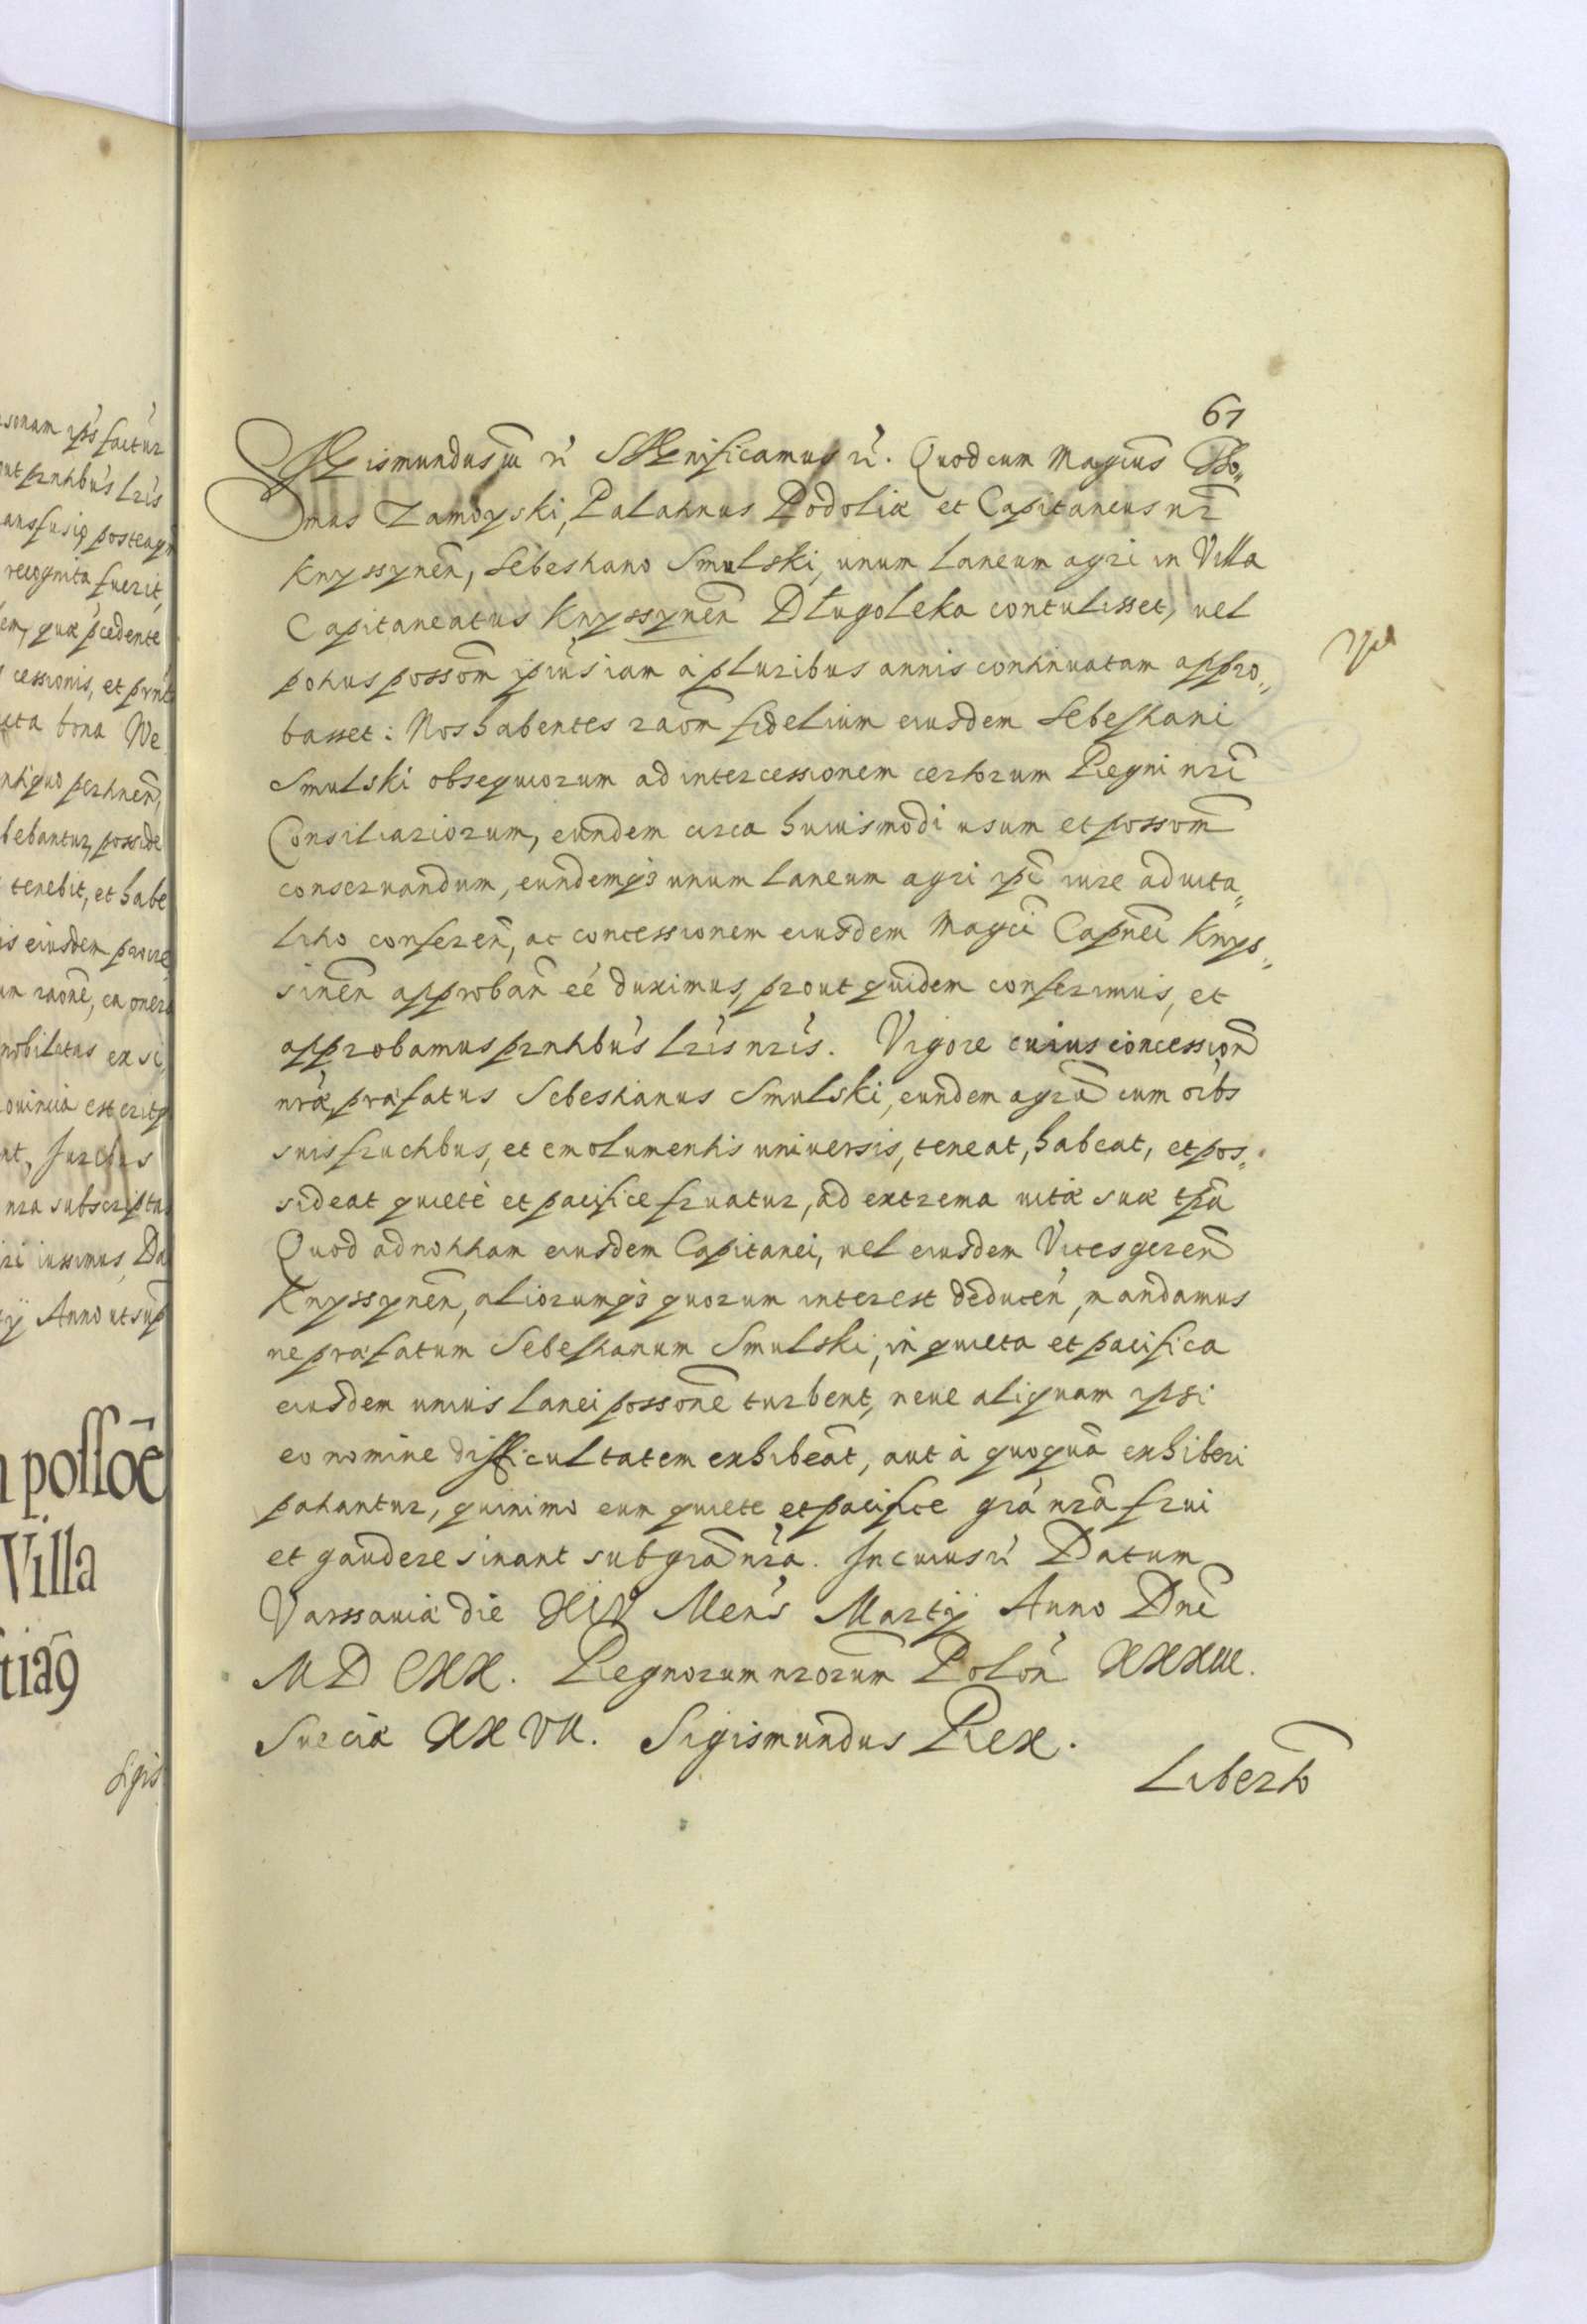 sonam ips factur
ut prntibus lris
ansfusis, posteaq
recognita fuerit,
em, quæ pcedente
cessionis, et prnt
ata bona We
ntiquo pertinen,
bebantur, posside
tenebit, et habe
is eiusdem
um raone, ea onera
nobilitas ex si
ouincia est erit
nt, Juribus
nra subscripta
ri iussimus, Da
Anno ut sup
possoe
Villa
tia9
Sigis
67
Sigismundus III rc Significamus rc. Quod cum Magcus Tho„
mas Zamoyski, Palatinus Podoliæ et Capitaneus nr
Knyssynen, Sebestiano Smulski, unum laneum agri in Villa
Capitaneatus Knyssynen Długoleka contulisset, uel
potius possom ipius iam à pluribus annis continuatam appro„
basset: Nos habentes raom fidelium eiusdem Sebestiani
Smulski obsequiorum ad intercessionem certorum Regni nri
Consiliariorum, eundem circa huiusmodi usum et possom
conseruandum, eundemq3 unum laneum agri ipi iure aduita„
litio conferen, ac concessionem eiusdem Magci Capnei Knys„
sinen approban eé duximus, prout quidem conferimus, et
approbamus prntibus lris nris. Vigore cuius concession
nræ, præfatus Sebestianus Smulski, eundem agru cum oibs
suis fructibus, et emolumentis uniuersis, teneat, habeat, et pos„
sideat quietè et pacifice fruatur, ad extrema uitæ suæ tpa
Quod ad notitiam eiusdem Capitanei, uel eiusdem Vicesgeren
Knyssynen, aliorumq3 quorum interest deducen, mandamus
ne præfatum Sebestianum Smulski, in quieta et pacifica
eiusdem unius lanei possone turbent, neue aliquam ipsi
eo nomine difficultatem exhibeat, aut à quoqua exhiberi
patiantur, quinimo eum quiete et pacifice gra nra frui
et gaudere sinant sub gra nra. In cuius rc Datum
Varssauiæ die XIV Mens Martij Anno Dni
MDCXX. Regnorum nrorum Polon XXXIII.
Sueciæ XXVII. Sigismundus Rex.
Liberto